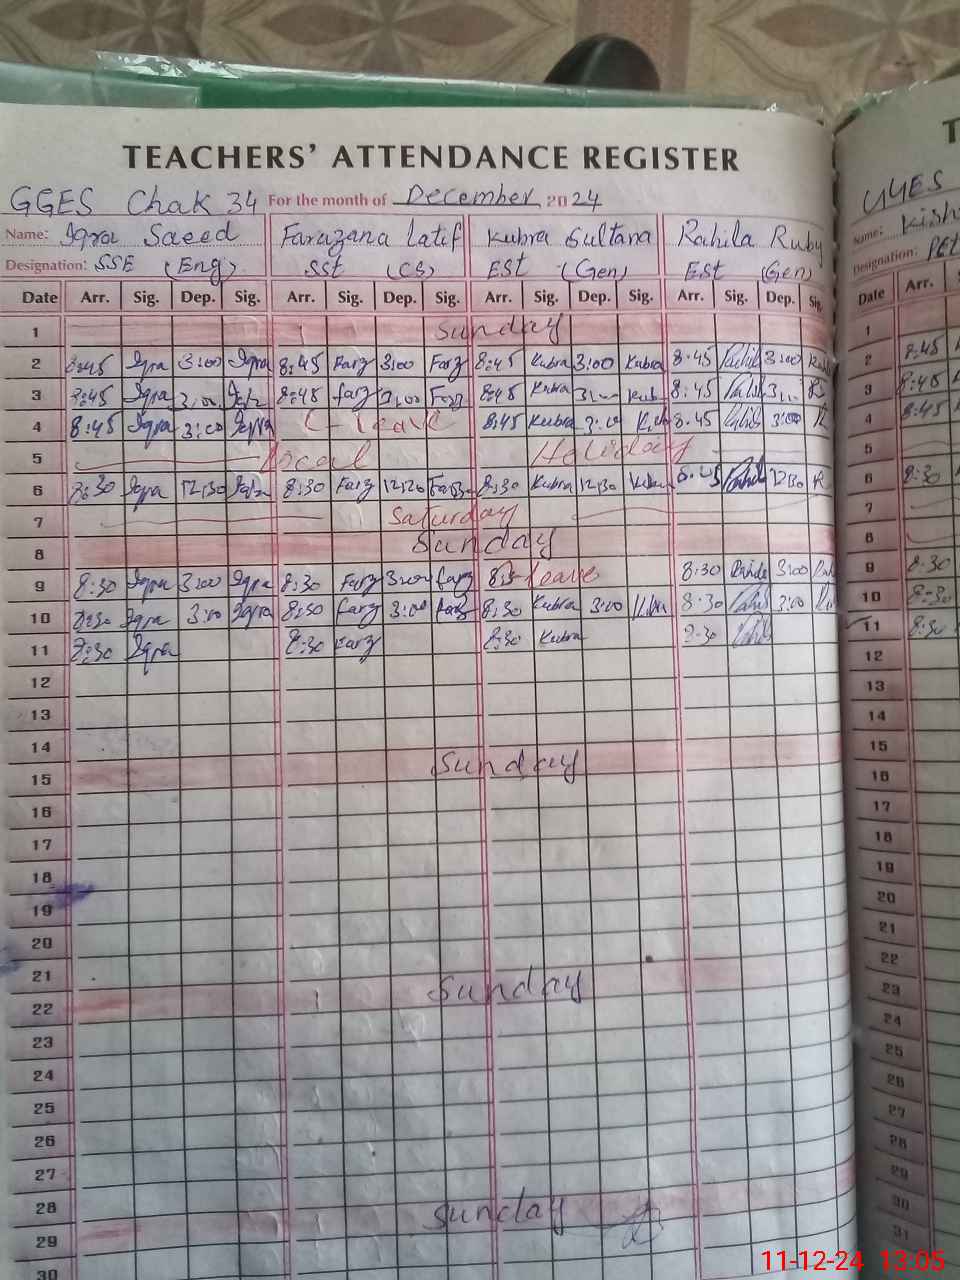 TEACHERS' ATTENDANCE REGISTER
GGES Chak 34 For the month of December 2024
Name: Iqra Saeed Farazana Latif Kubra Sultana Rahila Ruby
Designation: SSE (Eng) SSt (CS) ESt (Gen) ESt (Gen)
Date Arr. Sig. Dep. Sig. Arr. Sig. Dep. Sig. Arr. Sig. Dep. Sig. Arr. Sig. Dep. Sig.
1 Sunday
2 8:45 Iqra 3:00 Iqra 8:45 Farz 3:00 Farz 8:45 Kubra 3:00 Kubra 8:45 3:00
3 8:45 Iqra 3:00 Iqra 8:45 Farz 3:00 Farz 8:45 Kubra 3:00 Kub 8:45 3:00
4 8:45 Iqra 3:00 Iqra C-Leave 8:45 Kubra 3:00 8:45 3:00
5 Local Holiday
6 8:30 Iqra 12:30 Iqra 8:30 Farz 12:30 Farz 8:30 Kubra 12:30 Kubra 12:30
7 Saturday
8 Sunday
9 8:30 Iqra 3:00 Iqra 8:30 Farz 3:00 Farz Leave 8:30 3:00
10 8:30 Iqra 3:00 Iqra 8:30 Farz 3:00 Farz 8:30 Kubra 3:00 Kubra 8:30 3:00
11 8:30 Iqra 8:30 Farz 8:30 Kubra 8:30
12
13
14
15 Sunday
16
17
18
19
20
21
22 Sunday
23
24
25
26
27
28
29 Sunday
30
T
GGES
Name: Kish
Designation: PET
Date Arr.
1
2 8:45
3 8:45
4 8:45
5
6 8:30
7
8
9 8:30
10 8:30
11 8:30
12
13
14
15
16
17
18
19
20
21
22
23
24
25
26
27
28
29
30
31
11-12-24 13:05